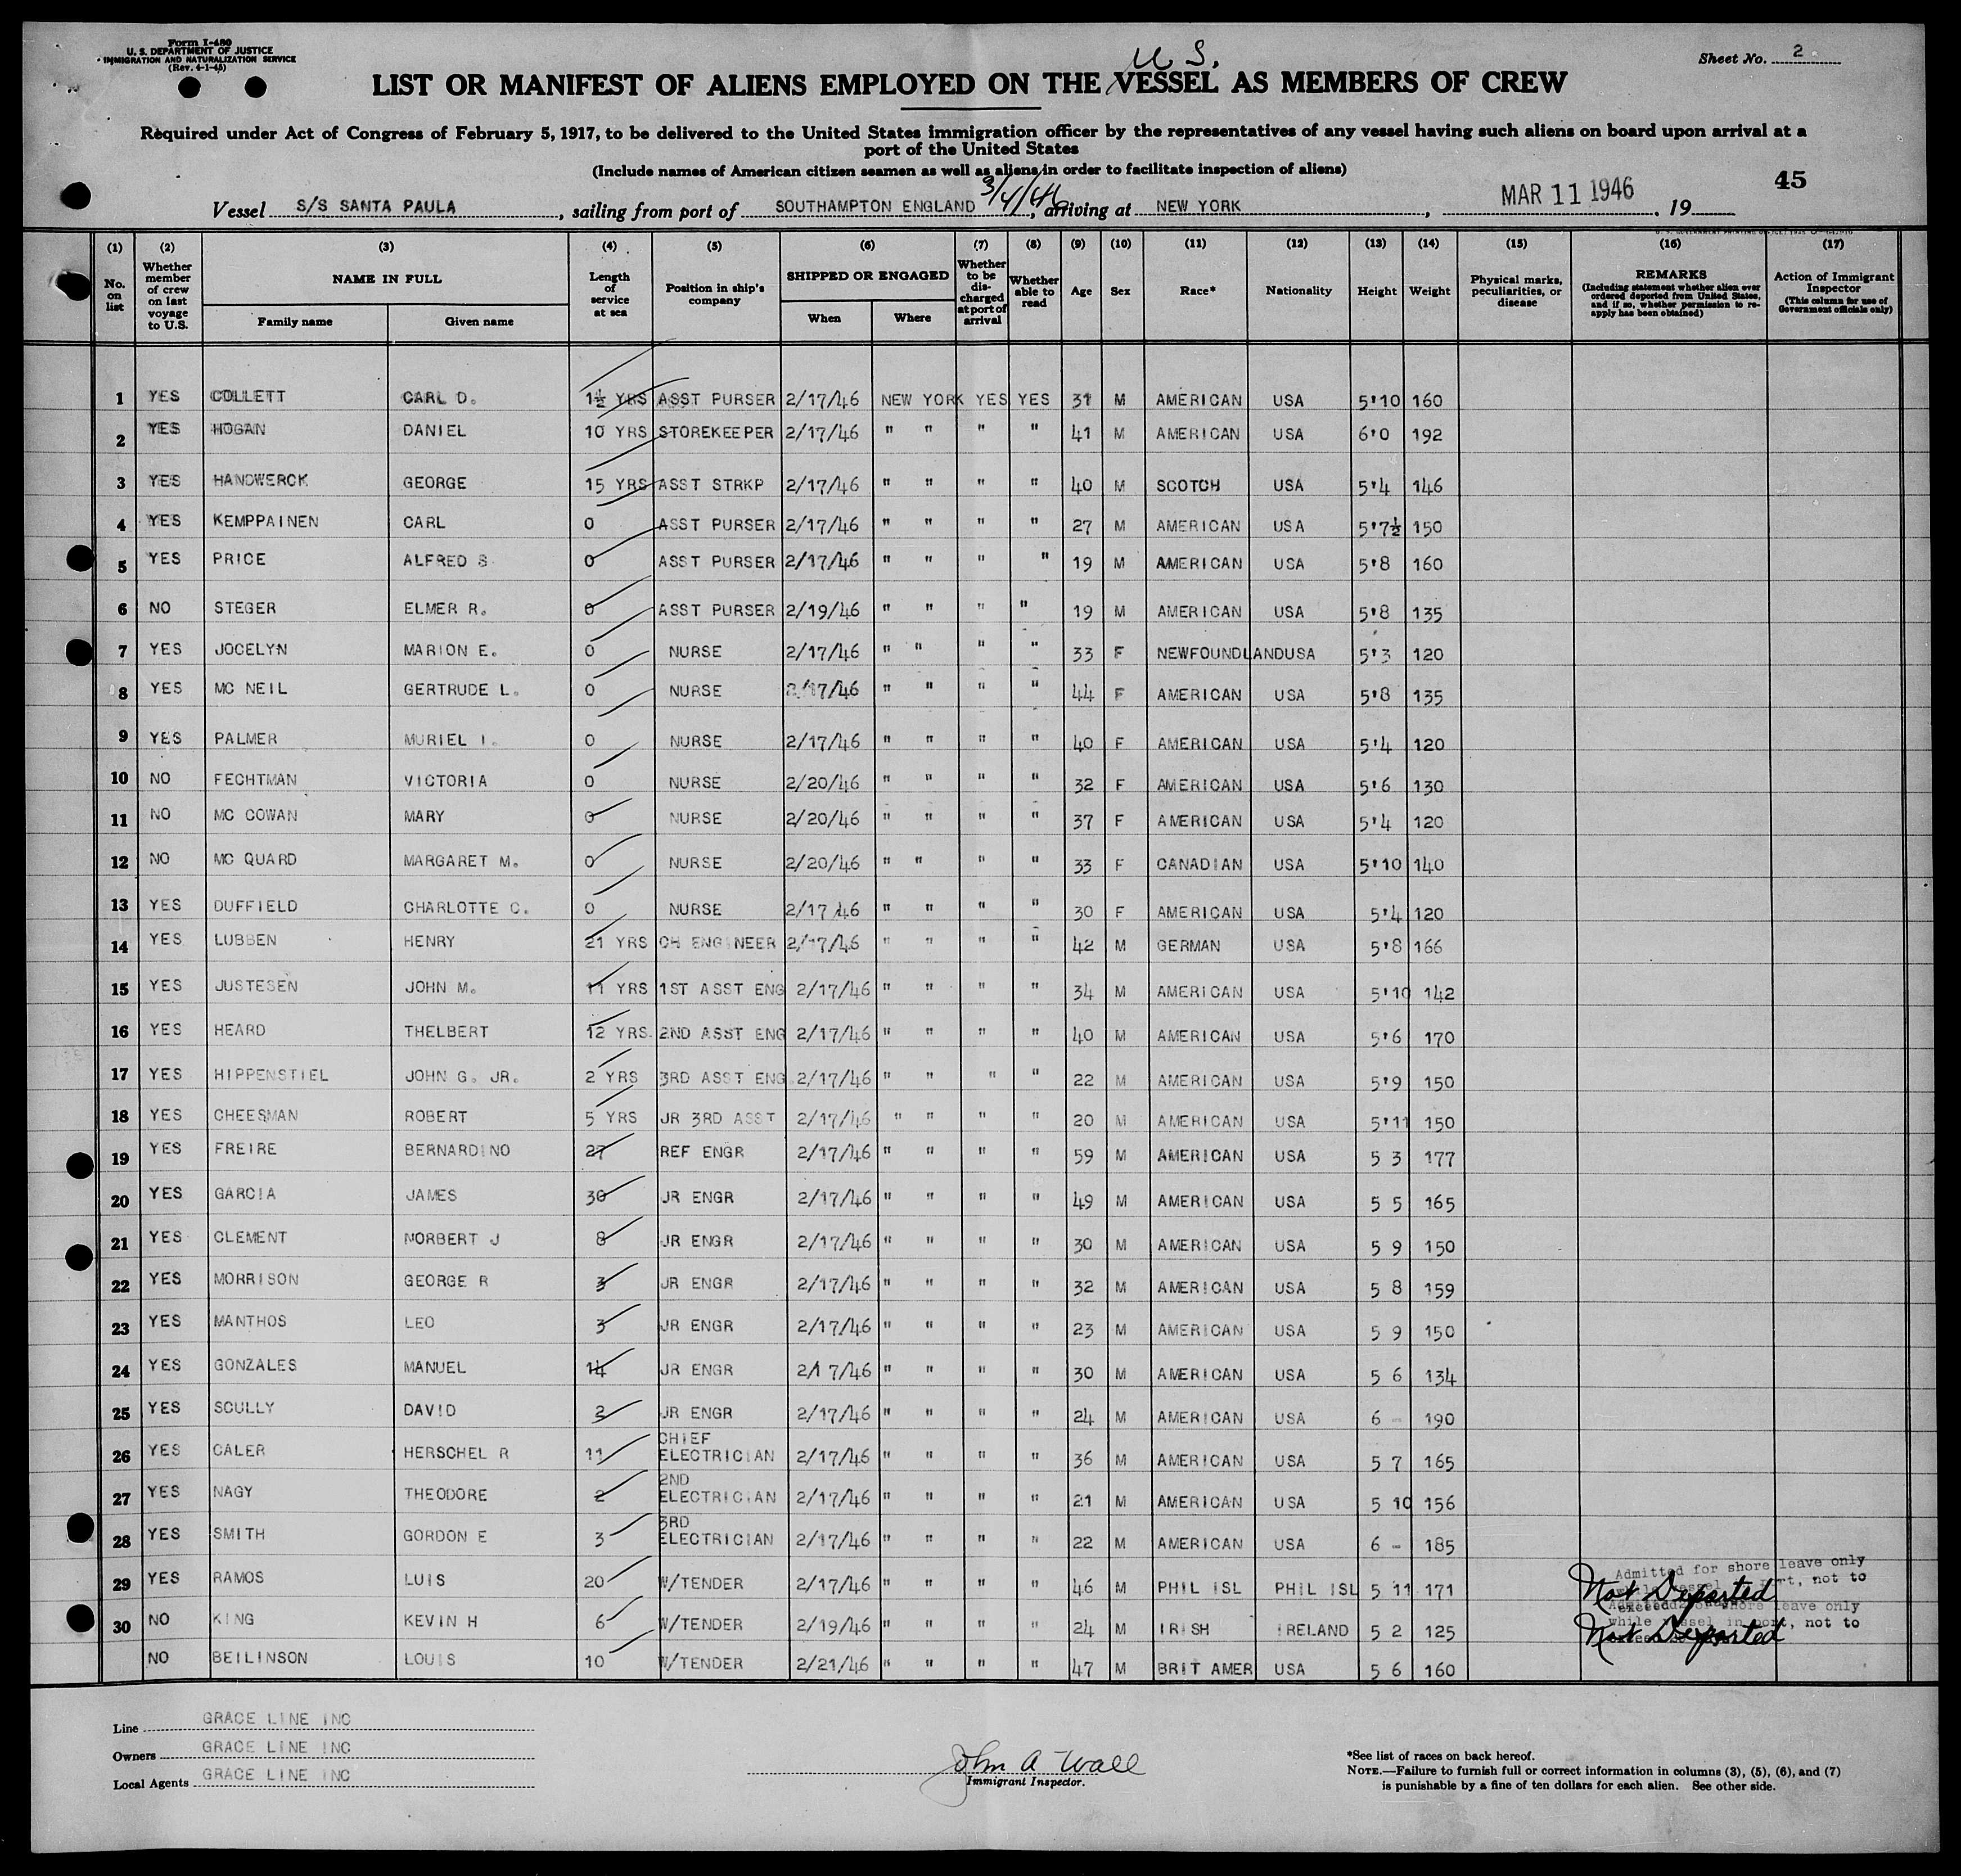 Form I-480
U. S. DEPARTMENT OF JUSTICE
IMMIGRATION AND NATURALIZATION SERVICE
(Rev. 4-1-45)
Sheet No. 2
U.S.
LIST OR MANIFEST OF ALIENS EMPLOYED ON THE VESSEL AS MEMBERS OF CREW
Required under Act of Congress of February 5, 1917, to be delivered to the United States immigration officer by the representatives of any vessel having such aliens on board upon arrival at a
port of the United States
(Include names of American citizen seamen as well as aliens in order to facilitate inspection of aliens)
45
Vessel S/S SANTA PAULA, sailing from port of SOUTHAMPTON ENGLAND 3/4/46, arriving at NEW YORK, MAR 11 1946, 19
(1) (2) (3) (4) (5) (6) (7) (8) (9) (10) (11) (12) (13) (14) (15) (16) (17)
No. on list
Whether member of crew on last voyage to U.S.
NAME IN FULL
Family name
Given name
Length of service at sea
Position in ship's company
SHIPPED OR ENGAGED
When
Where
Whether to be discharged at port of arrival
Whether able to read
Age
Sex
Race*
Nationality
Height
Weight
Physical marks, peculiarities, or disease
REMARKS
(Including statement whether alien ever ordered deported from United States, and if so, whether permission to re-apply has been obtained)
Action of Immigrant Inspector
(This column for use of Government officials only)
1 YES COLLETT CARL D. 1½ YRS ASST PURSER 2/17/46 NEW YORK YES YES 31 M AMERICAN USA 5'10 160
2 YES HOGAN DANIEL 10 YRS STOREKEEPER 2/17/46 " " " " 41 M AMERICAN USA 6'0 192
3 YES HANDWERCK GEORGE 15 YRS ASST STRKP 2/17/46 " " " " 40 M SCOTCH USA 5'4 146
4 YES KEMPPAINEN CARL 0 ASST PURSER 2/17/46 " " " " 27 M AMERICAN USA 5'7½ 150
5 YES PRICE ALFRED S 0 ASST PURSER 2/17/46 " " " " 19 M AMERICAN USA 5'8 160
6 NO STEGER ELMER R. 0 ASST PURSER 2/19/46 " " " " 19 M AMERICAN USA 5'8 135
7 YES JOCELYN MARION E. 0 NURSE 2/17/46 " " " " 33 F NEWFOUNDLANDUSA 5'3 120
8 YES MC NEIL GERTRUDE L. 0 NURSE 2/17/46 " " " " 44 F AMERICAN USA 5'8 135
9 YES PALMER MURIEL I. 0 NURSE 2/17/46 " " " " 40 F AMERICAN USA 5'4 120
10 NO FECHTMAN VICTORIA 0 NURSE 2/20/46 " " " " 32 F AMERICAN USA 5'6 130
11 NO MC COWAN MARY 0 NURSE 2/20/46 " " " " 37 F AMERICAN USA 5'4 120
12 NO MC QUARD MARGARET M. 0 NURSE 2/20/46 " " " " 33 F CANADIAN USA 5'10 140
13 YES DUFFIELD CHARLOTTE C. 0 NURSE 2/17 46 " " " " 30 F AMERICAN USA 5'4 120
14 YES LUBBEN HENRY 21 YRS CH ENGINEER 2/17/46 " " " " 42 M GERMAN USA 5'8 166
15 YES JUSTESEN JOHN M. 11 YRS 1ST ASST ENG 2/17/46 " " " " 34 M AMERICAN USA 5'10 142
16 YES HEARD THELBERT 12 YRS. 2ND ASST ENG 2/17/46 " " " " 40 M AMERICAN USA 5'6 170
17 YES HIPPENSTIEL JOHN G. JR. 2 YRS 3RD ASST ENG. 2/17/46 " " " " 22 M AMERICAN USA 5'9 150
18 YES CHEESMAN ROBERT 5 YRS JR 3RD ASST 2/17/46 " " " " 20 M AMERICAN USA 5'11 150
19 YES FREIRE BERNARDINO 27 REF ENGR 2/17/46 " " " " 59 M AMERICAN USA 5 3 177
20 YES GARCIA JAMES 30 JR ENGR 2/17/46 " " " " 49 M AMERICAN USA 5 5 165
21 YES CLEMENT NORBERT J 8 JR ENGR 2/17/46 " " " " 30 M AMERICAN USA 5 9 150
22 YES MORRISON GEORGE R 3 JR ENGR 2/17/46 " " " " 32 M AMERICAN USA 5 8 159
23 YES MANTHOS LEO 3 JR ENGR 2/17/46 " " " " 23 M AMERICAN USA 5 9 150
24 YES GONZALES MANUEL 14 JR ENGR 2/17/46 " " " " 30 M AMERICAN USA 5 6 134
25 YES SCULLY DAVID 2 JR ENGR 2/17/46 " " " " 24 M AMERICAN USA 6 - 190
26 YES CALER HERSCHEL R 11 CHIEF ELECTRICIAN 2/17/46 " " " " 36 M AMERICAN USA 5 7 165
27 YES NAGY THEODORE 2 2ND ELECTRICIAN 2/17/46 " " " " 21 M AMERICAN USA 5 10 156
28 YES SMITH GORDON E 3 3RD ELECTRICIAN 2/17/46 " " " " 22 M AMERICAN USA 6 - 185
29 YES RAMOS LUIS 20 W/TENDER 2/17/46 " " " " 46 M PHIL ISL PHIL ISL 5 11 171 Admitted for shore leave only Not Departed
30 NO KING KEVIN H 6 W/TENDER 2/19/46 " " " " 24 M IRISH IRELAND 5 2 125 shore leave only while vessel in port, not to Not Departed
NO BEILINSON LOUIS 10 W/TENDER 2/21/46 " " " " 47 M BRIT AMER USA 5 6 160
Line GRACE LINE INC
Owners GRACE LINE INC
Local Agents GRACE LINE INC
John A Wall
Immigrant Inspector.
*See list of races on back hereof.
NOTE.—Failure to furnish full or correct information in columns (3), (5), (6), and (7)
is punishable by a fine of ten dollars for each alien. See other side.